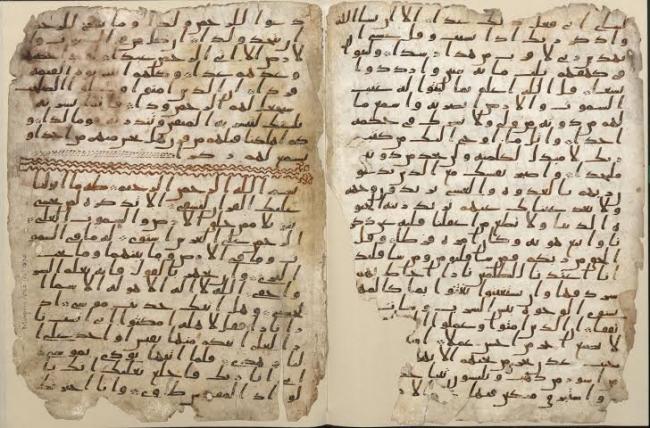 لشاي اني فعل ذلك غدا الا ان يشا الله
واذكر ربك اذا نسيت وقل عسى ان
يهدين ربي لاقرب من هذا رشدا ولبثوا
في كهفهم ثلث مائة سنين وازدادوا
تسعا قل الله اعلم بما لبثوا له غيب
السموت والارض ابصر به واسمع ما
لهم من دونه من ولي ولا يشرك في حكمه
احدا واتل ما اوحي اليك من كتب
ربك لا مبدل لكلمته ولن تجد من دونه
ملتحدا واصبر نفسك مع الذين يدعون
ربهم بالغدوة والعشي يريدون وجهه
ولا تعد عينك عنهم تريد زينة الحيو
ة الدنيا ولا تطع من اغفلنا قلبه عن ذكر
نا واتبع هويه وكان امره فرطا وقل
الحق من ربكم فمن شا فليومن ومن شا فليكفر
انا اعتدنا للظلمين نارا احاط بهم
سردقها وان يستغيثوا يغثوا بما كالمهل
يشوي الوجوه بئس الشراب وسات
تفقا ان الذين امنوا وعملوا
لا نضيع اجر من احسن عملا
جنت عدن تجري من تحتهم الانهر
من اسور من ذهب ويلبسون ثيابا
واستبرق متكين فيها
دعوا للرحمن ولدا وما ينبغي للرحمن
ان يتخذ ولدا ان كل من في السموت و
الارض الا اتي الرحمن عبدا
وعدهم عدا وكلهم اتيه يوم القيمة
فردا ان الذين امنوا وعملوا الصلحت
سيجعل لهم الرحمن ودا فانما يسرنه
بلسنك لتبشر به المتقين وتنذر به قوما لدا و
كم اهلكنا قبلهم من قرن هل تحس منهم من احد او
تسمع لهم ركزا
بسم الله الرحمن الرحيم طه ما انزلنا
عليك القران لتشقى الا تذكرة لمن يخشى
تنزيلا ممن خلق الارض والسموت العلى
الرحمن على العرش استوى له ما في السمو
ت وما في الارض وما بينهما وما تحت
الثرى وان تجهر بالقول فانه يعلم السر
واخفى الله لا اله الا هو له الاسما ا
لحسنى وهل اتيك حديث موسى اذ
را نارا فقال لاهله امكثوا اني انست نا
را لعلي اتيكم منها بقبس او اجد على ا
لنار هدى فلما اتيها نودي يموسى
اني انا ربك فاخلع نعليك انك با
لواد المقدس طوى وانا اخترتك